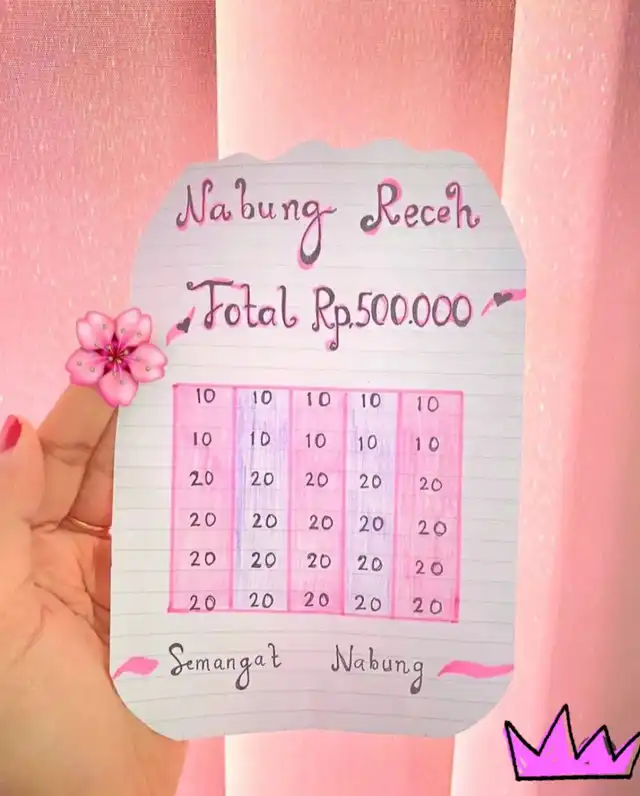 Nabung Receh
Total Rp.500.000
10 10 10 10 10
10 10 10 10 10
20 20 20 20 20
20 20 20 20 20
20 20 20 20 20
20 20 20 20 20
Semangat Nabung